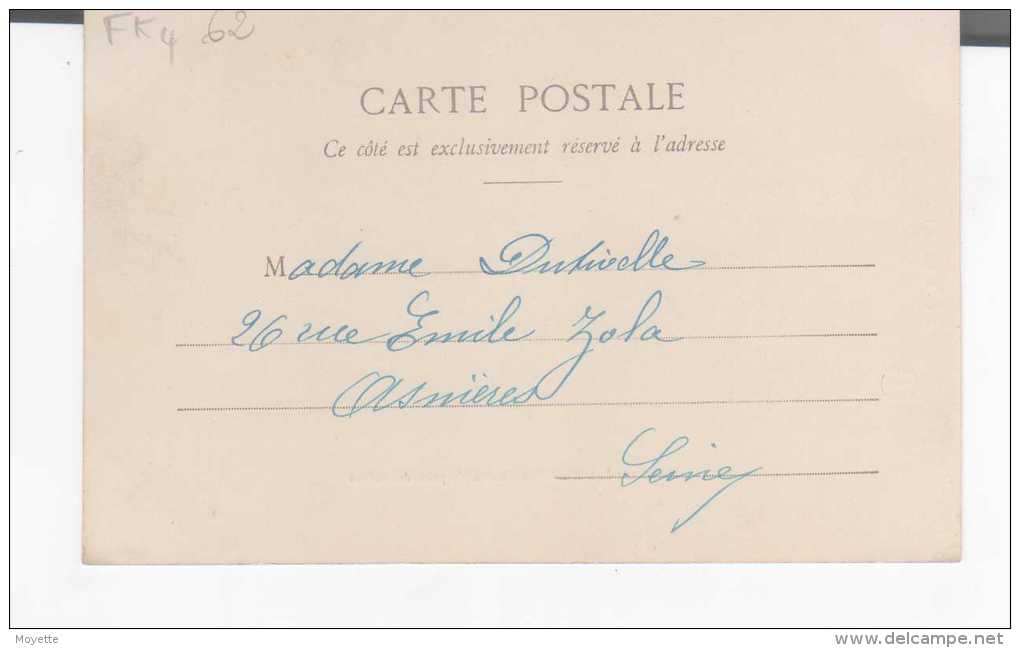 FK4 62
CARTE POSTALE
Ce côté est exclusivement réservé à l'adresse
Madame
26 rue Emile Zola
Asnières
Seine
Moyette
www.delcampe.net